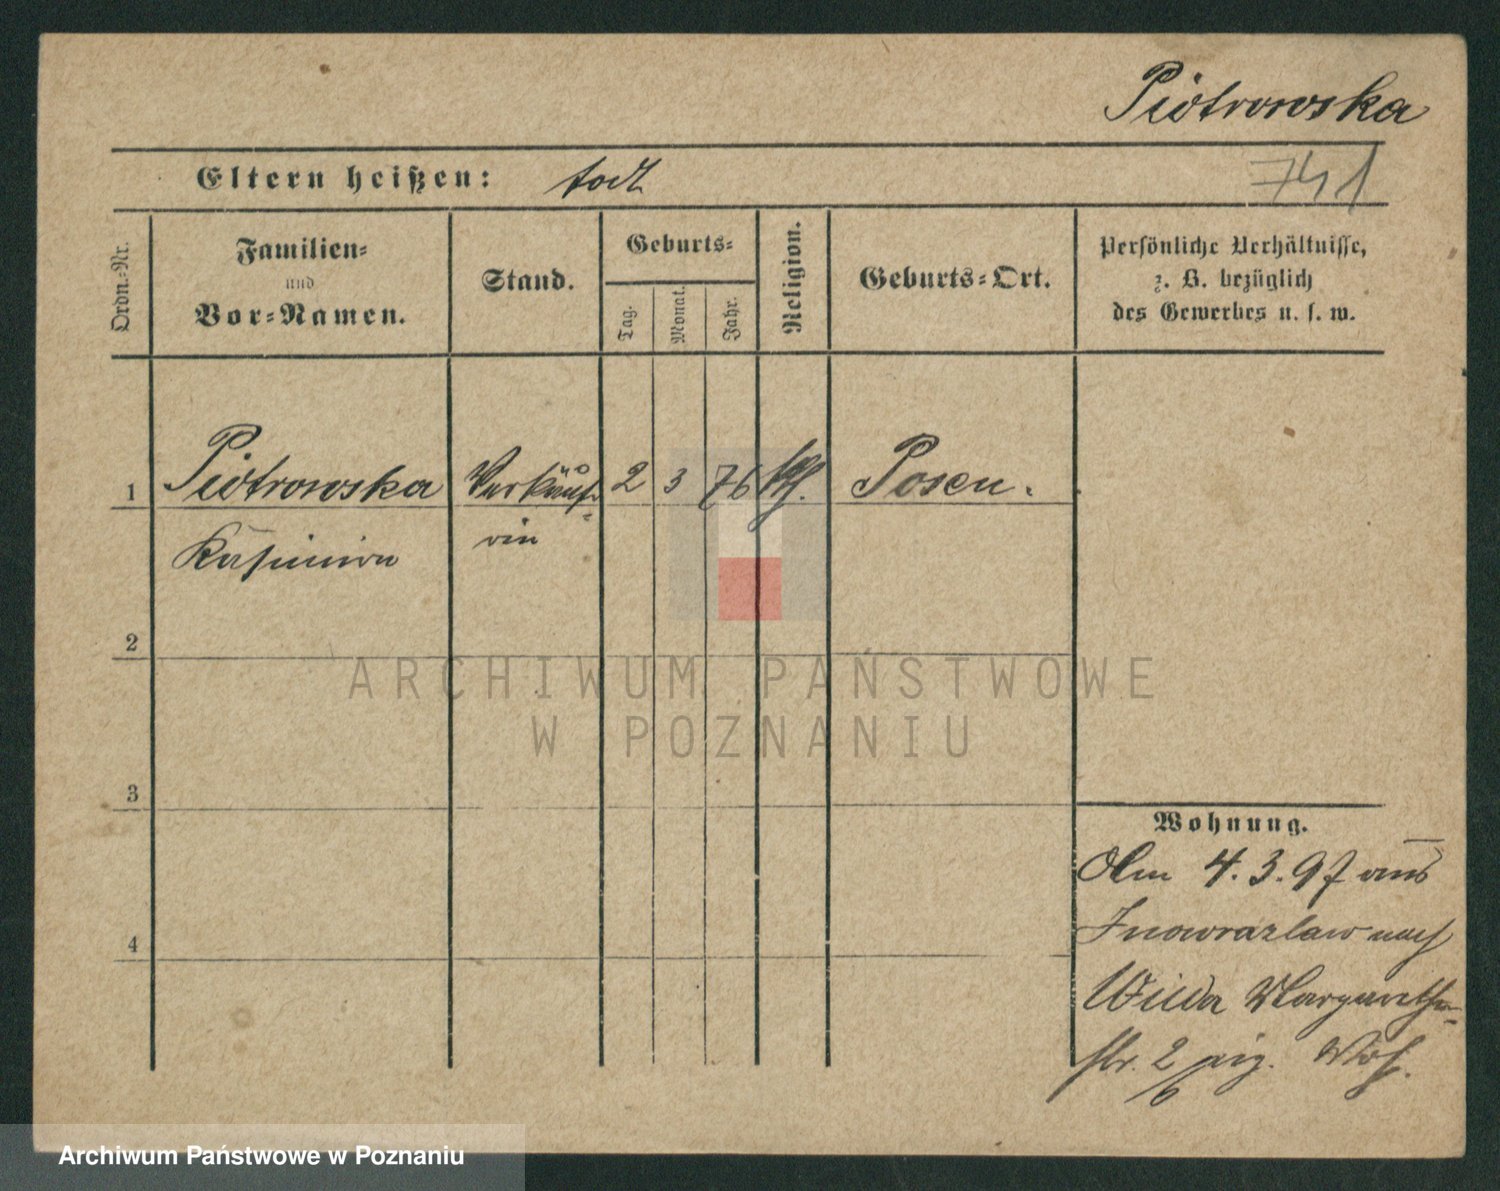 Piotrowska
741
Eltern heißen: todt
Ordn.=Nr.
Familien=
und
Vor=Namen.
Stand.
Geburts=
Tag.
Monat.
Jahr.
Religion.
Geburts=Ort.
Persönliche Verhältnisse,
z. B. bezüglich
des Gewerbes u. s. w.
1 Piotrowska Verkäufe= 2 3 76 kth. Posen.
Kasimira rin
2
3
4
ARCHIWUM PAŃSTWOWE
W POZNANIU
Wohnung.
Am 4.3.97 aus
Inowrazlaw nach
Wilda Margarethen=
str. 2 eig. Woh.
6
Archiwum Państwowe w Poznaniu